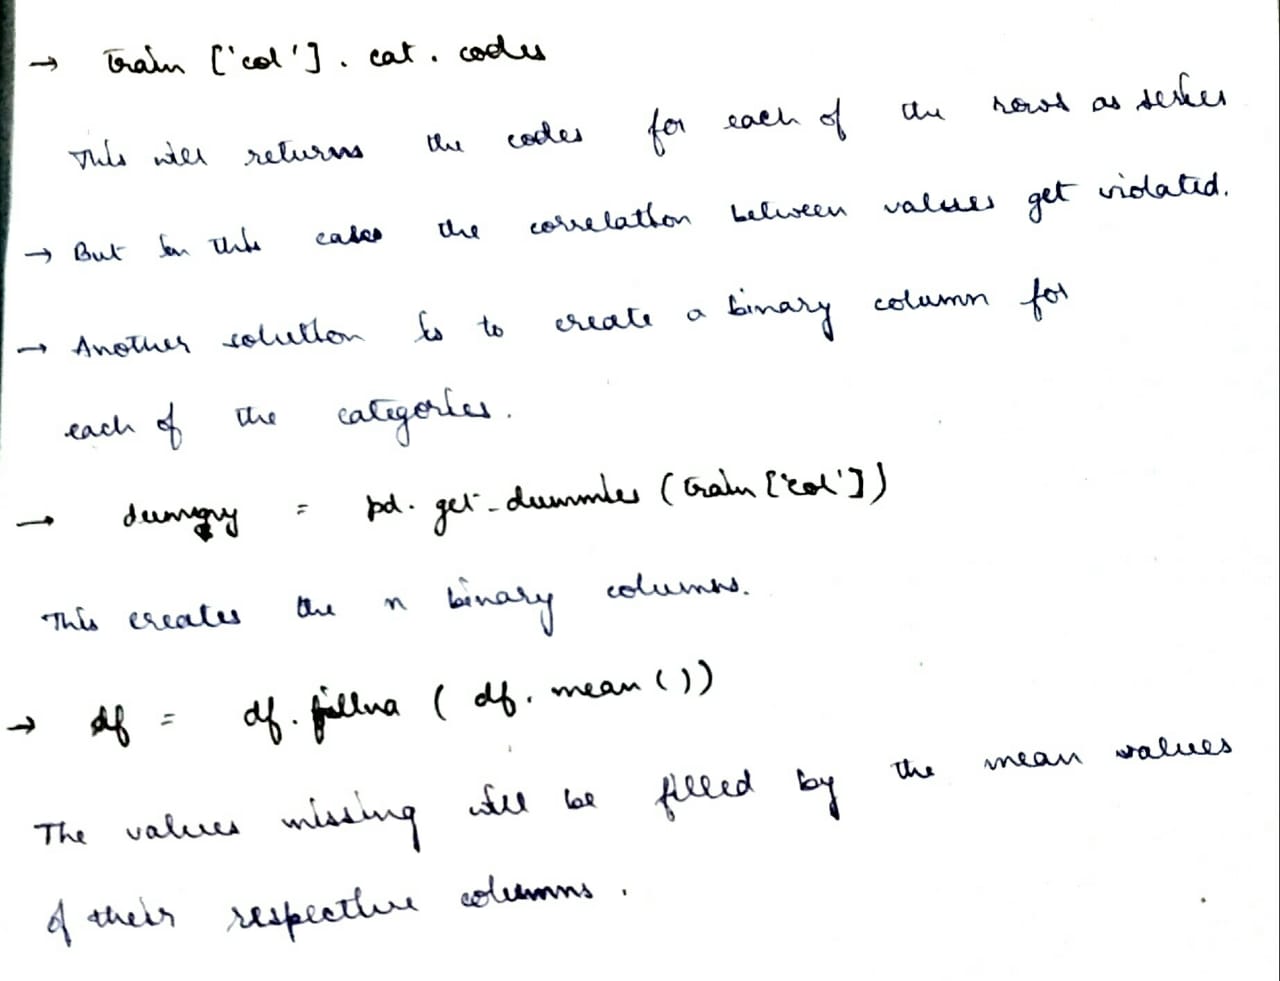 → train ['col'] . cat . codes
This will returns the codes for each of the rows as series
→ But in this cases the correlation between values get violated.
→ Another solution is to create a binary column for
each of the categories.
→ dummy = pd. get_dummies (train ['col'])
This creates the n binary columns.
→ df = df. fillna ( df. mean ())
The values missing will be filled by the mean values
of their respective columns .